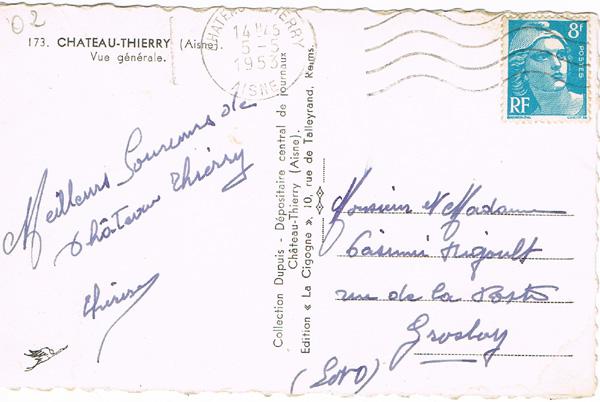 02
173. CHATEAU-THIERRY (Aisne).
Vue générale.
CHATEAU-THIERRY
14H45
5-5
1953
AISNE
8F
POSTES
RF
Meilleurs Souvenirs de
Château Thiérry
Thérèse
Collection Dupuis - Dépositaire central de journaux
Château-Thierry (Aisne).
Edition « La Cigogne », 10, rue de Talleyrand, Reims.
Monsieur & Madame
Casimir Rigoult
rue de la Poste
Grosboy